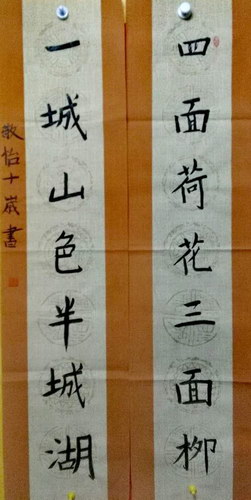 四面荷花三面柳
一城山色半城湖
敬怡十歲書